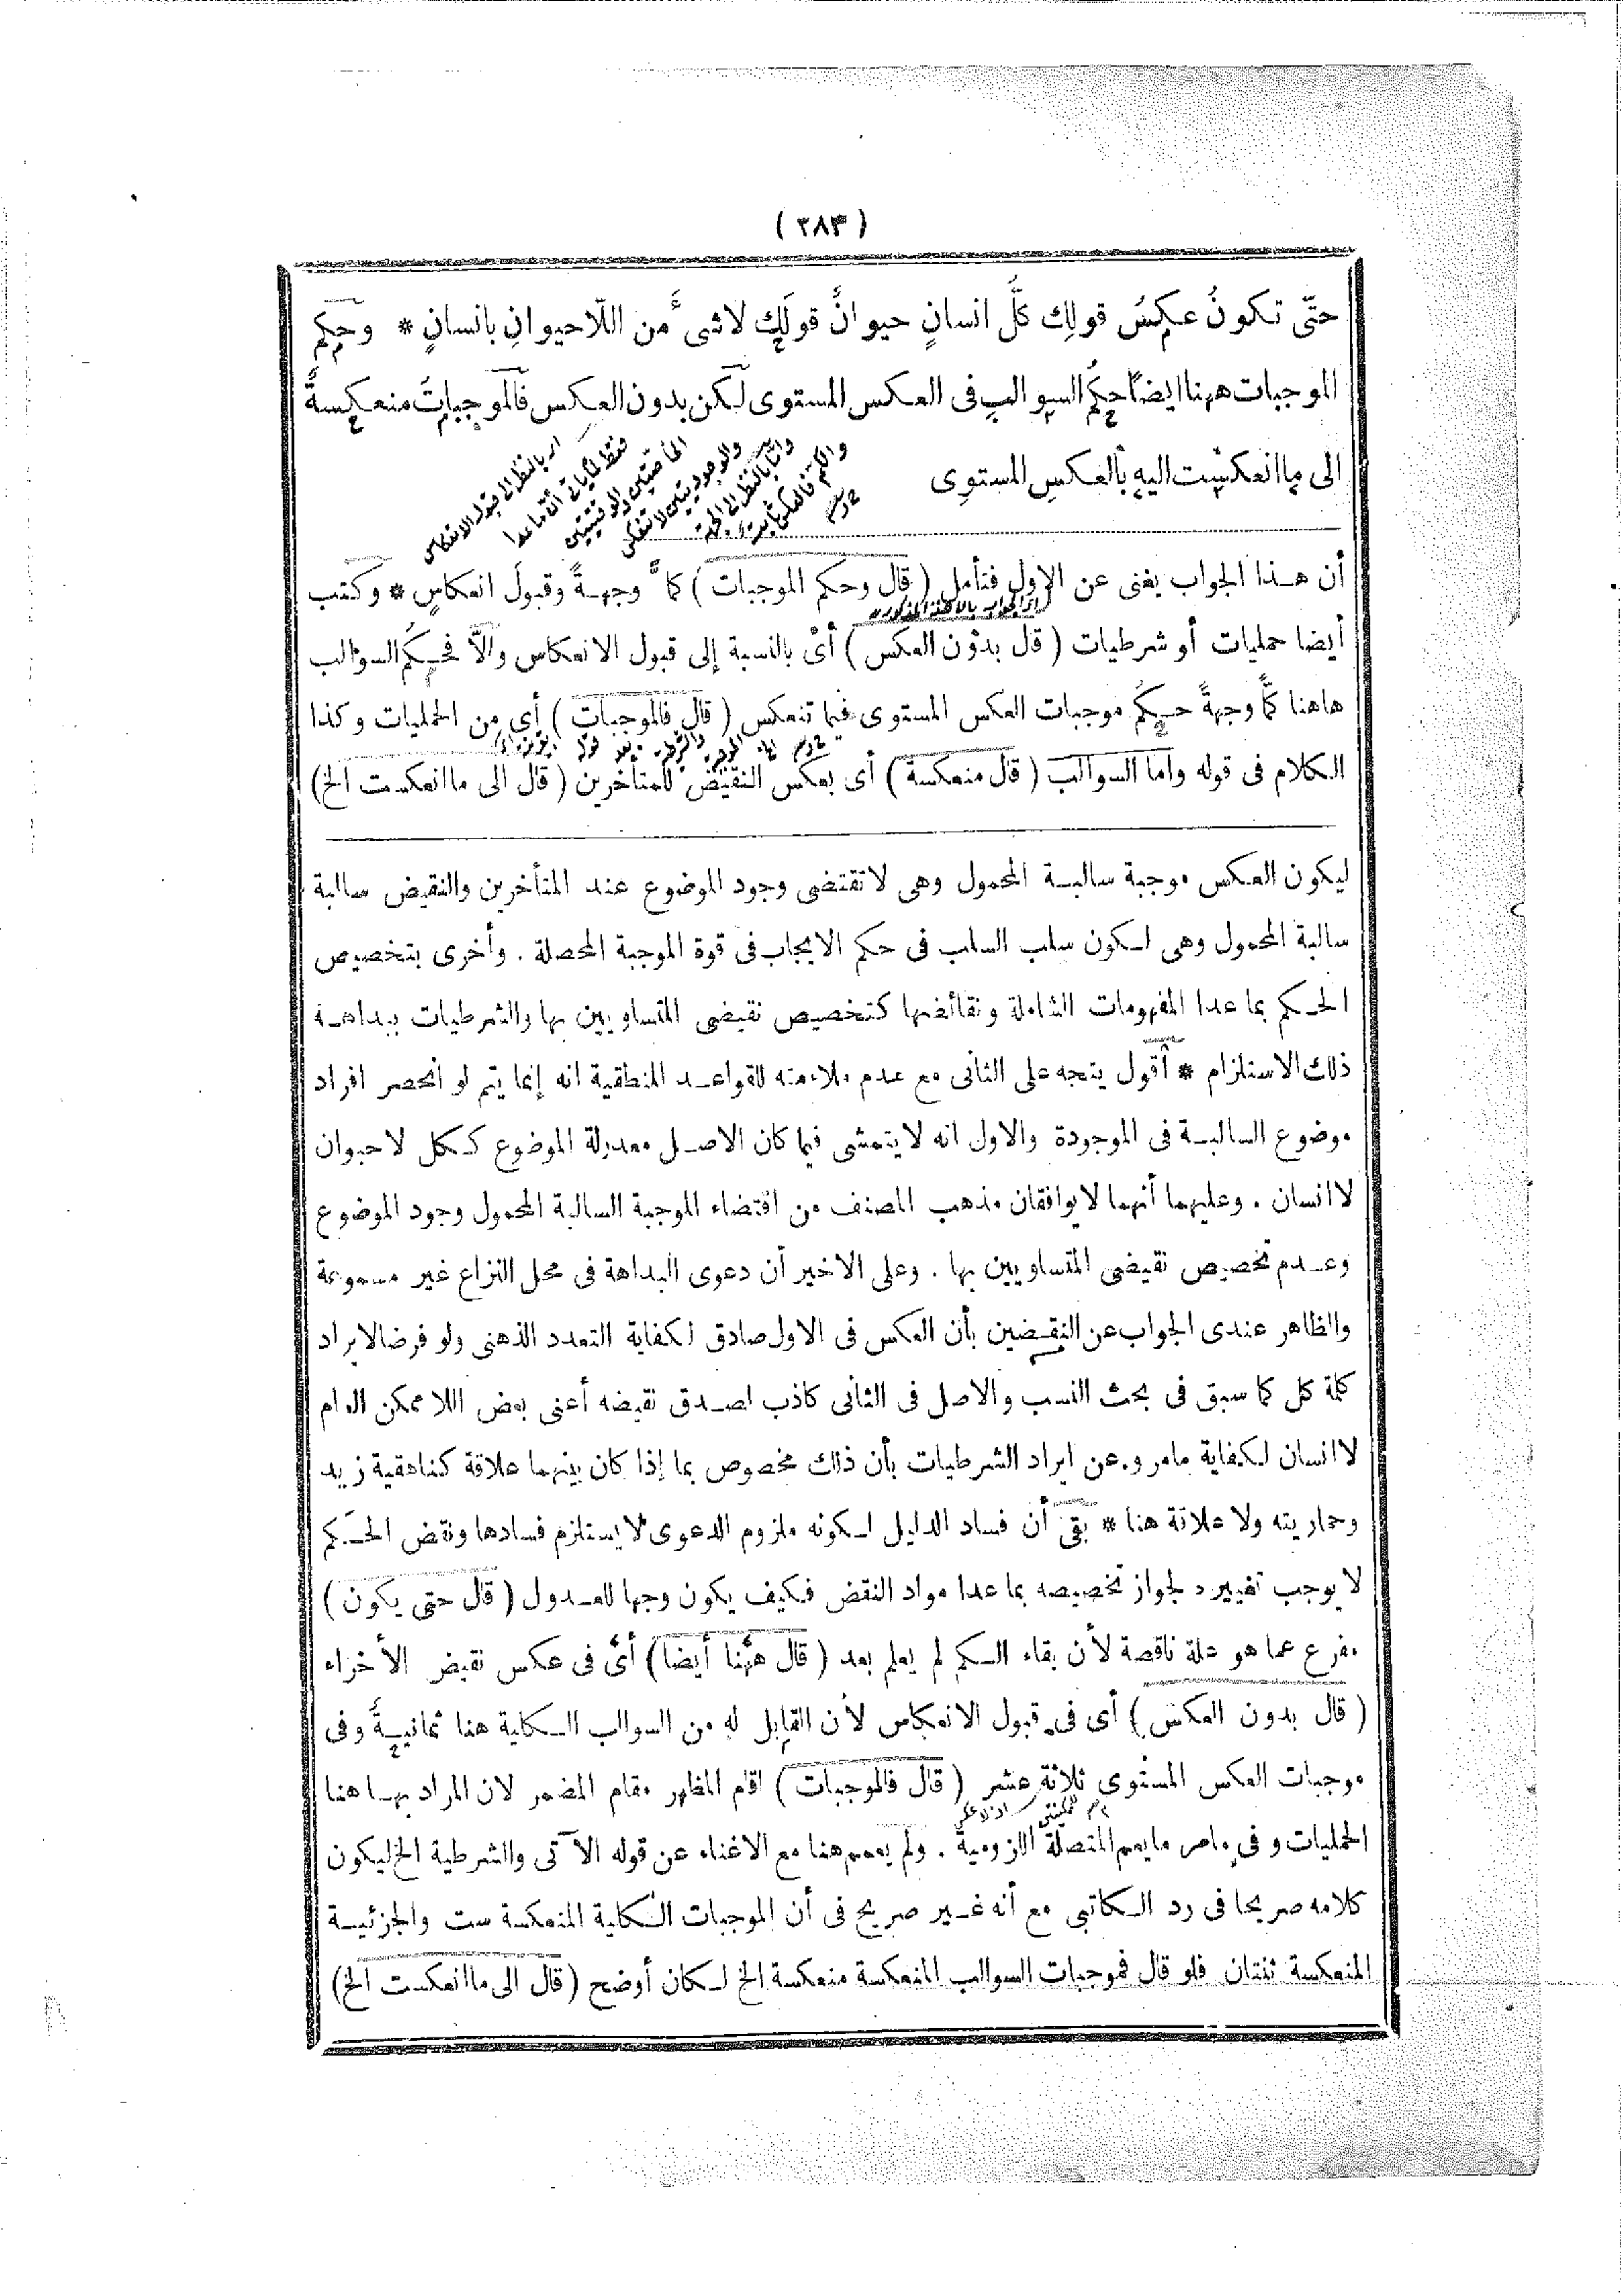 ( ٢٨٣ )
حتّى تكونُ عكسُ قولِك كلَّ انسانٍ حيوانٌ قولَك لاشىءَ من اللّاحيوانِ بانسانٍ * وحكم
الموجبات ههنا ايضاً حكمُ السوالبِ فى العكس المستوى لكن بدون العكس فالموجباتُ منعكسةٌ
الى ما انعكست اليه بالعكسِ المستوِى
أن هذا الجواب يغنى عن الاول فتأمل ( قال وحكم الموجبات ) كماًّ وجهةً وقبولَ انعكاسٍ * وكتب
أيضا حمليات أو شرطيات ( قال بدون العكس ) أى بالنسبة إلى قبول الانعكاس والاّ فحكمُ السوالب
هاهنا كمًّا وجهةً حكمُ موجبات العكس المستوى فيما تنعكس ( قال فالموجبات ) أى من الحمليات وكذا
الكلام فى قوله واما السوالب ( قال منعكسة ) أى بعكس النقيض للمتأخرين ( قال الى ما انعكست الخ )
ليكون العكس موجبة سالبة المحمول وهى لا تقتضى وجود الموضوع عند المتأخرين والنقيض سالبة
سالبة المحمول وهى لكون سلب السلب فى حكم الايجاب فى قوة الموجبة المحصلة . وأخرى بتخصيص
الحكم بما عدا المفهومات الشاملة ونقائضها كتخصيص نقيضى المتساويين بها والشرطيات ببداهة
ذلك الاستلزام * أقول يتجه على الثانى مع عدم ملاءمته للقواعد المنطقية انه إنما يتم لو انحصر افراد
موضوع السالبة فى الموجودة والاول انه لا يتمشى فيما كان الاصل معدولة الموضوع ككل لاحيوان
لاانسان . وعليهما أنهما لا يوافقان مذهب المصنف من اقتضاء الموجبة السالبة المحمول وجود الموضوع
وعدم تخصيص نقيضى المتساويين بها . وعلى الاخير أن دعوى البداهة فى محل النزاع غير مسموعة
والظاهر عندى الجواب عن النقيضين بأن العكس فى الاول صادق لكفاية التعدد الذهنى ولو فرضا لايراد
كلمة كل كما سبق فى بحث النسب والاصل فى الثانى كاذب لصدق نقيضه أعنى بعض اللا ممكن العام
لاانسان لكفاية مامر و.عن ايراد الشرطيات بأن ذلك مخصوص بما إذا كان بينهما علاقة كناهقية زيد
وحماريته ولا علاقة هنا * بقى أن فساد الدليل لكونه ملزوم الدعوى لا يستلزم فسادها ونقض الحكم
لا يوجب تغييره لجواز تخصيصه بما عدا مواد النقض فكيف يكون وجها للعدول ( قال حتى يكون )
مفرع عما هو علة ناقصة لأن بقاء الكم لم يعلم بعد ( قال ههنا أيضا ) أى فى عكس نقيض الأخراء
( قال بدون العكس ) أى فى قبول الانعكاس لأن القابل له من السوالب الكلية هنا ثمانيةٌ وفى
موجبات العكس المستوى ثلاثة عشر ( قال فالموجبات ) اقام المظهر مقام المضمر لان المراد بها هنا
الحمليات وفى مامر مايعم المتصلة اللزومية . ولم يعمم هنا مع الاغناء عن قوله الآتى والشرطية الخ ليكون
كلامه صريحا فى رد الكاتبى مع أنه غير صريح فى أن الموجبات الكلية المنعكسة ست والجزئية
المنعكسة ثنتان فلو قال فموجبات السوالب المنعكسة منعكسة الخ لكان أوضح ( قال الى ما انعكست الخ )